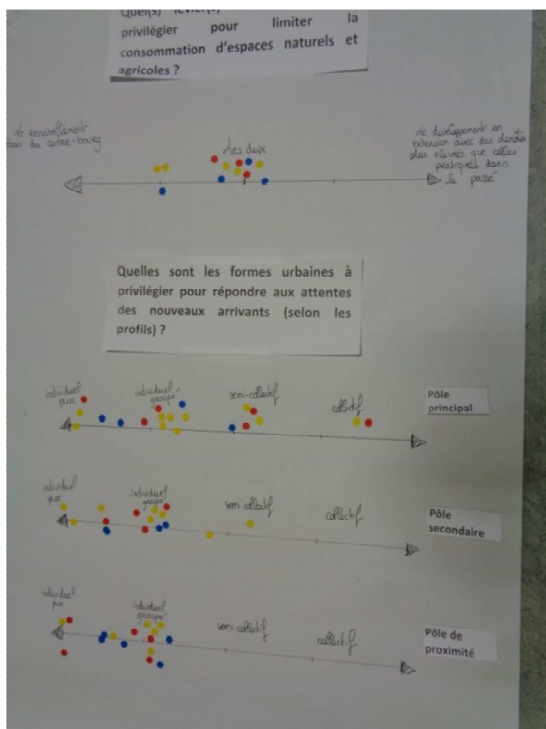 privilégier pour limiter la
consommation d'espaces naturels et
agricoles ?
Le renouvellement
du centre-bourg
Les deux
Le développement en
extension avec des densités
plus élevées que celles
pratiquées dans
le passé
Quelles sont les formes urbaines à
privilégier pour répondre aux attentes
des nouveaux arrivants (selon les
profils) ?
individuel
pur
individuel
groupé
semi-collectif
collectif
Pôle
principal
individuel
pur
individuel
groupé
semi collectif
collectif
Pôle
secondaire
individuel
pur
individuel
groupé
semi-collectif
collectif
Pôle de
proximité